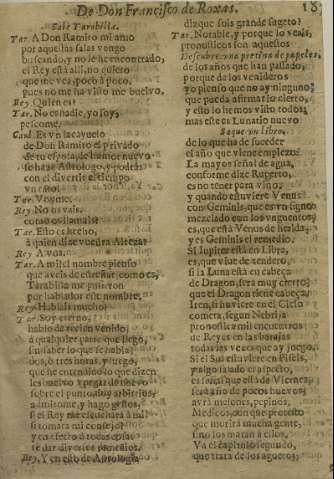 De Don Francisco de Roxas. 18
Sale Tarabilla.
Tar. A Don Ramiro mi amo
por aquestas salas vengo
buscando, y no le he encontrado,
el Rey está allí, no quiero
que me vea, poco à poco,
pues no me ha visto me buelvo.
Rey Quien es?
Tar. No es nadie, yo soy,
Cond. Es vn lacayuelo
de Don Ramiro el privado
de tu espola, de humor nuevo
se haze Astrologo, y podràs
con èl divertir el tiempo
vn rato.
Tar. Voyme.
Rey No os vais.
como os llamais?
Tar. Esto es hecho,
à quien dize vuestra Alteza?
Rey A vos.
Tar. A mi el nombre pienso
que aveis de estrañar, como es,
Tarabilla me pusieron
por hablador este nombre.
Rey Hablais mucho?
Tar. Soy eterno,
hablo de rezien venido,
à qualquier parte que llego,
sin saber lo que se habla
dos, ò tres horas, y luego
que he entendido lo que dizen
les buelvo a pegar de nuevo
sobre el punto, ay arbitrios,
y hago gestos,
si el Rey
si tomàra mi consejo,
y en efecto à todas cosas
se dar diversos remedios.
Rey Y en esto de Astrologia
dizque sois grande sugeto?
Tar. Notable, y porque lo veais,
pronosticos son aquestos
Descubre una pretina de papeles.
de los años que han passado,
porque de los venideros
yo pienso que no ay ninguno
que pueda afirmar lo cierto,
y esto lo hemos visto todos,
mas este es Lunario nuevo
Saque un libro.
de lo que ha de suceder
el año que viene empiezo:
La mayor señal de agua,
conforme dize Ruperto,
es no tener para vino,
y quando estuviere Venus
con Geminis, que es vn signo
mezclado con los vnguentos,
es, que està Venus herida,
y es Geminis el remedio.
Si Iupiter està en Libra,
es, que vive de tendero,
si la Luna està en cabeça
de Dragon, serà muy cierto,
que el Dragon tiene cabeça;
Iten, si huviere en el Cielo
cometa, segun Nebrija
pronostica mil encuentros
de Reyes en las barajas
todas las vezes que ay juego.
Si el Sol estuviere en Piscis,
es señal que està de Viernes,
serà año de pocos huevos,
avrà melones, pepinos,
Medicos, con que protesto
que morirà mucha gente,
sino los matan à ellos.
Va el capitulo segundo,
que trata de los agueros,